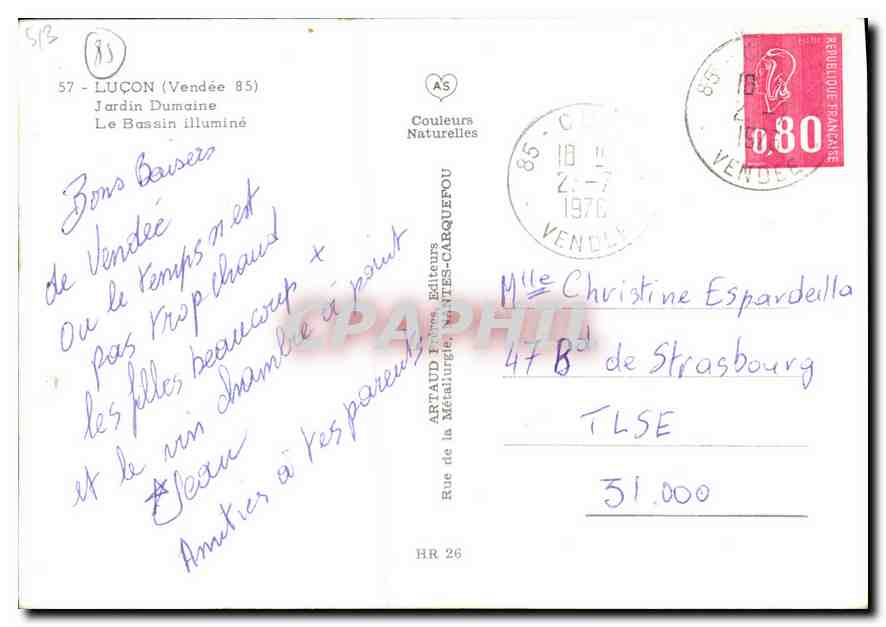 S/3
85
57 - LUÇON (Vendée 85)
Jardin Dumaine
Le Bassin illuminé
AS
Couleurs
Naturelles
85 -
18
1976
VENDÉE
85 -
18
VENDÉE
POSTES
RÉPUBLIQUE FRANÇAISE
0,80
Bons Baisers
de Vendée
Ou le temps n'est
pas trop chaud
les filles beaucoup x
et le vin chambré à point
Jean
Amitiés à tes parents
ARTAUD Frères, Editeurs
Rue de la Métallurgie, NANTES-CARQUEFOU
HR 26
CPAPHIL
Mlle Christine Espardeilla
47 Bd de Strasbourg
TLSE
31.000